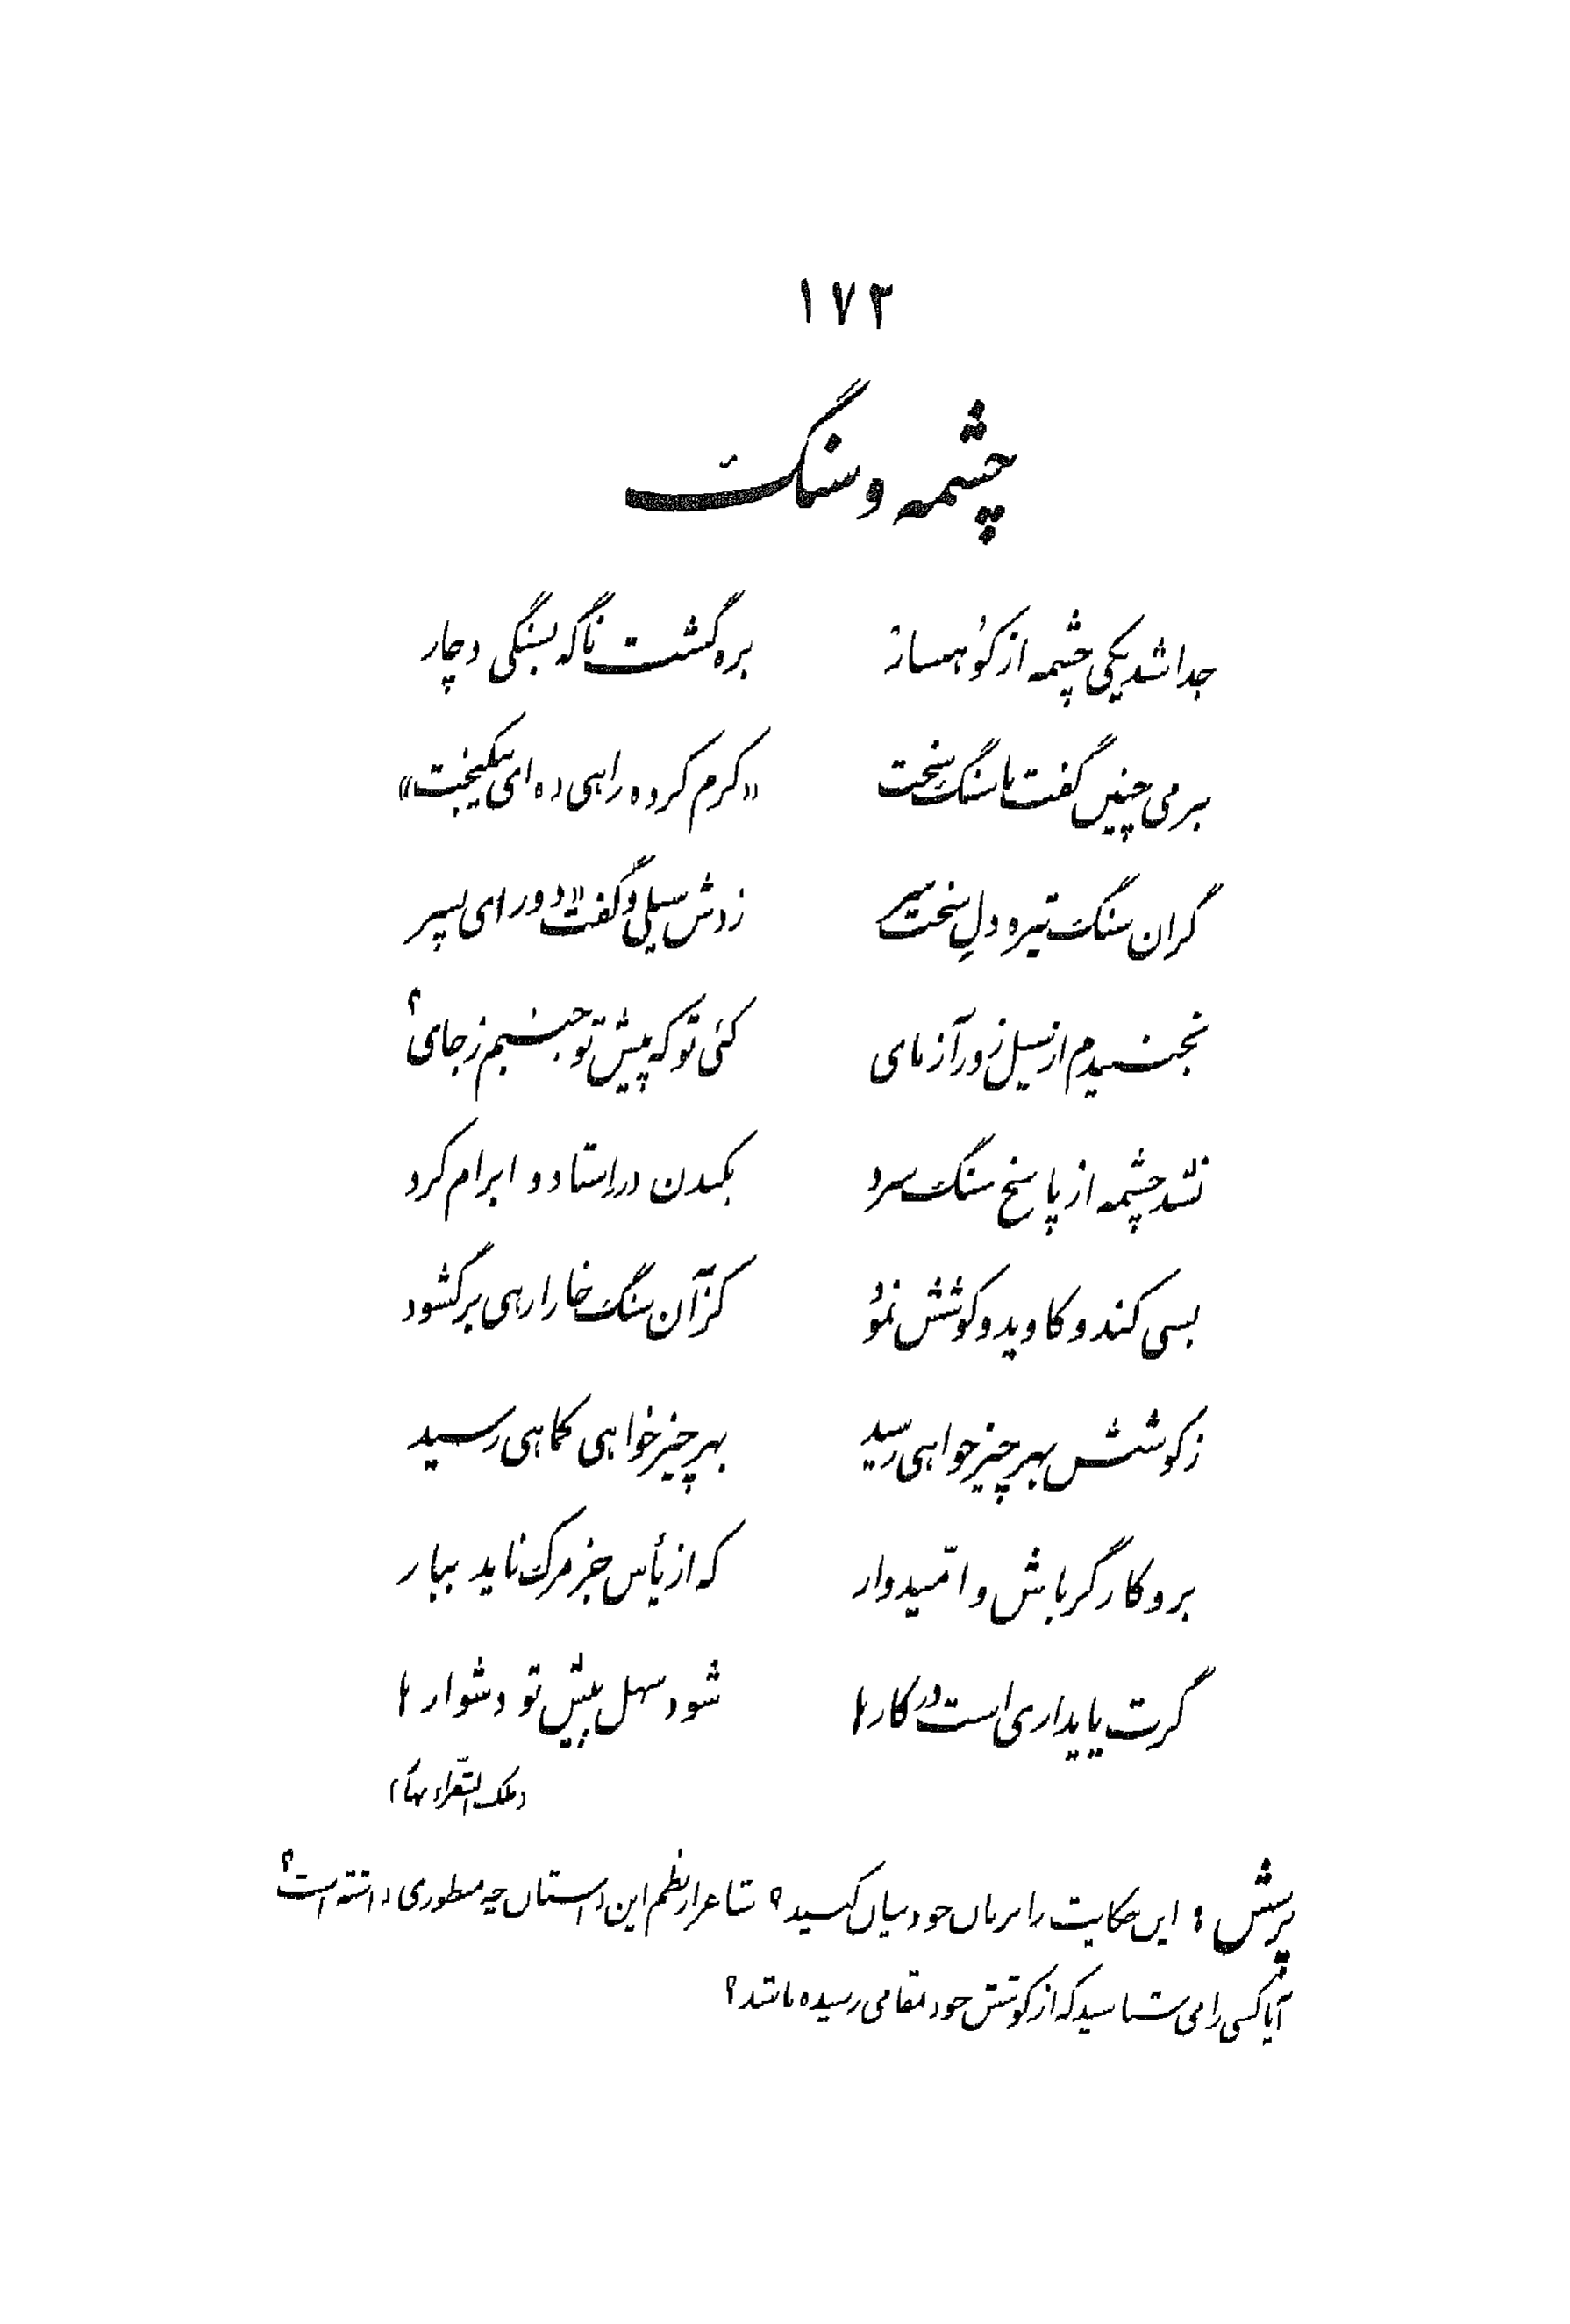 ۱۷۲
چشمه و سنگ
جدا شد یکی چشمه از کوهسار بره گشت ناگه بسنگی دچار
بنرمی چنین گفت با سنگ سخت «کرم کرده راهی ده ای نیکبخت»
گران سنگ تیره دلِ سخت سر زدش سیلی و گفت «دور ای پسر
نجنبیدم از سیل زورآزمای کئی تو که پیش تو جنبم ز جای؟
نشد چشمه از پاسخ سنگ سرد بکندن در استاد و ابرام کرد
بسی کند و کاوید و کوشش نمود کز آن سنگ خارا رهی برگشود
ز کوشش بهر چیز خواهی رسید بهر چیز خواهی کماهی رسید
برو کارگر باش و امّیدوار که از یأس جز مرگ ناید ببار
گرت پایداری است در کارها شود سهل پیش تو دشوارها
(ملک الشّعراء بهار)
پرسش : این حکایت را بزبان خود بیان کنید؟ شاعر از نظم این داستان چه منظوری داشته است؟
آیا کسی را می شناسید که از کوشش خود بمقامی رسیده باشد؟